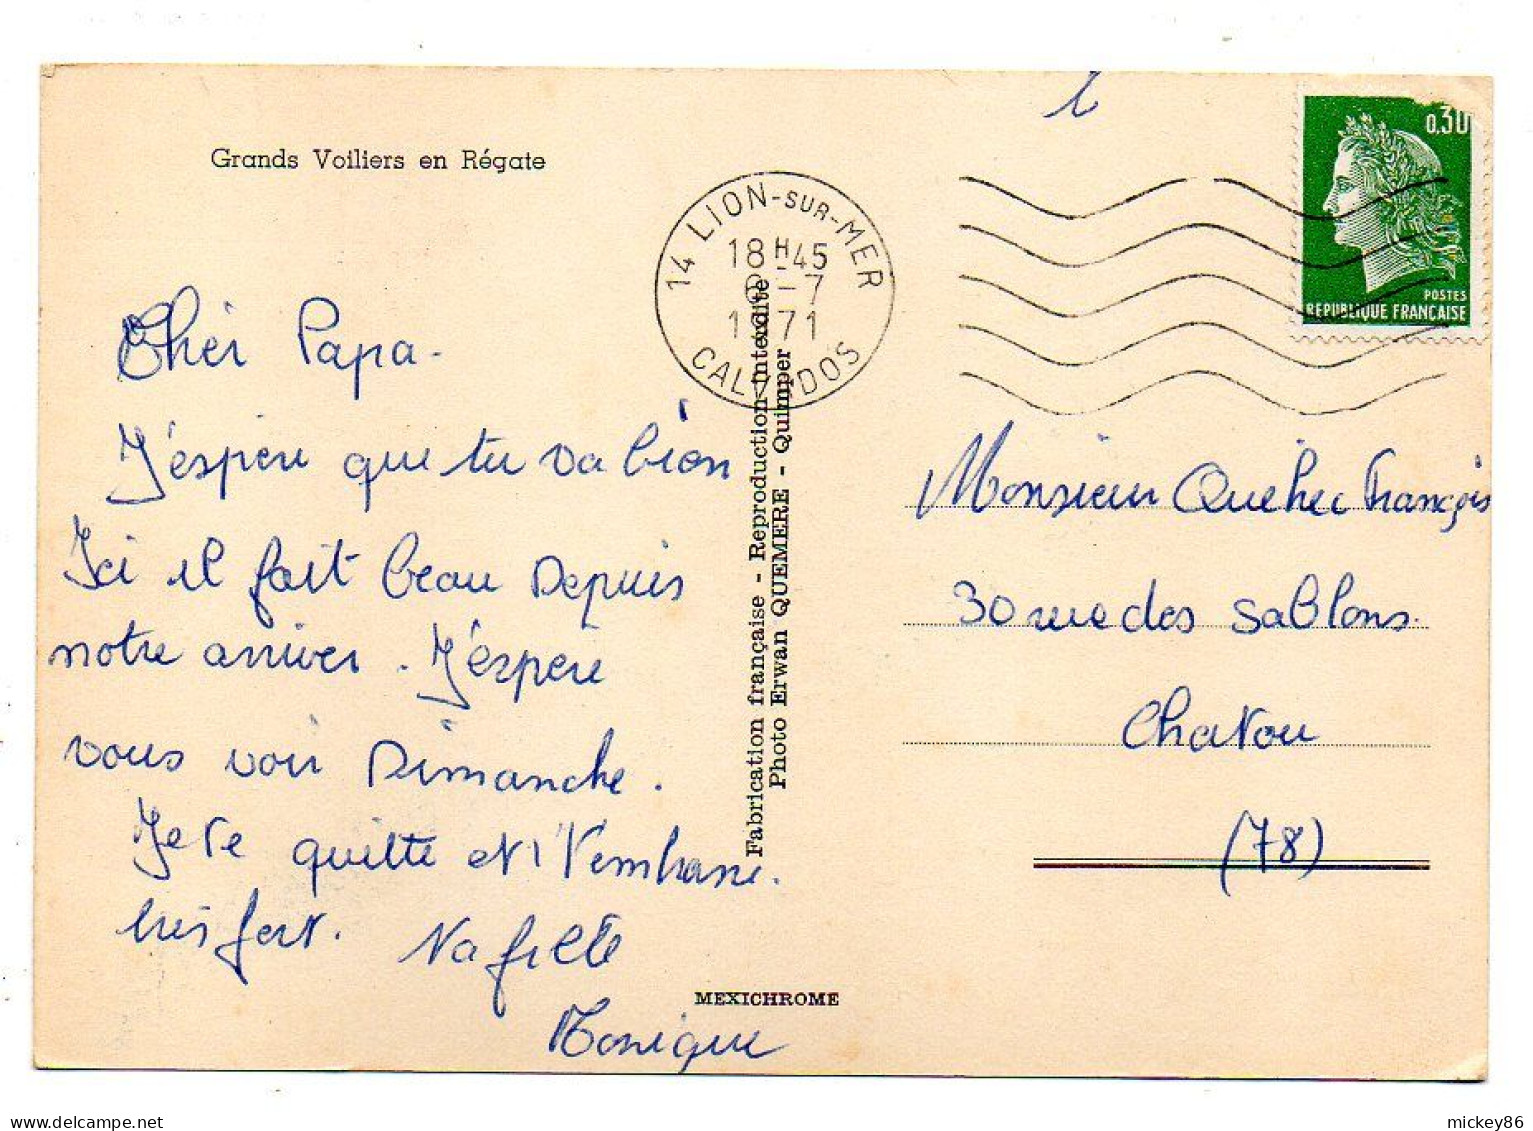 Grands Voiliers en Régate
Chér Papa.
J'éspère que tu va bien
Ici il fait beau Depuis
notre arriver. J'éspère
vous voir Dimanche.
Je te quitte et t'embrasse.
très fort. Ta fille
Monique
Fabrication française - Reproduction interdite
Photo Erwan QUEMERE - Quimper
MEXICHROME
14 LION-SUR-MER
18H45
-7
1971
CALVADOS
0,30
POSTES
REPUBLIQUE FRANÇAISE
Monsieur Québec François
30 rue des Sablons.
Chatou
(78)
mickey86